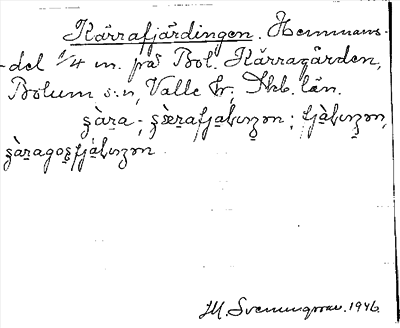 Kärrafjärdingen. Hemmans-
-del 1/4 m. på Bol. Kärragården,
Bolum s:n, Valle hr, Skb. län.
ʂàra; ʂæ̀rafjaɫɩŋʒən; fjàɫɩŋʒən,
ʂàragoʂfjaɫɩŋʒən
M. Svenungsson. 1946.